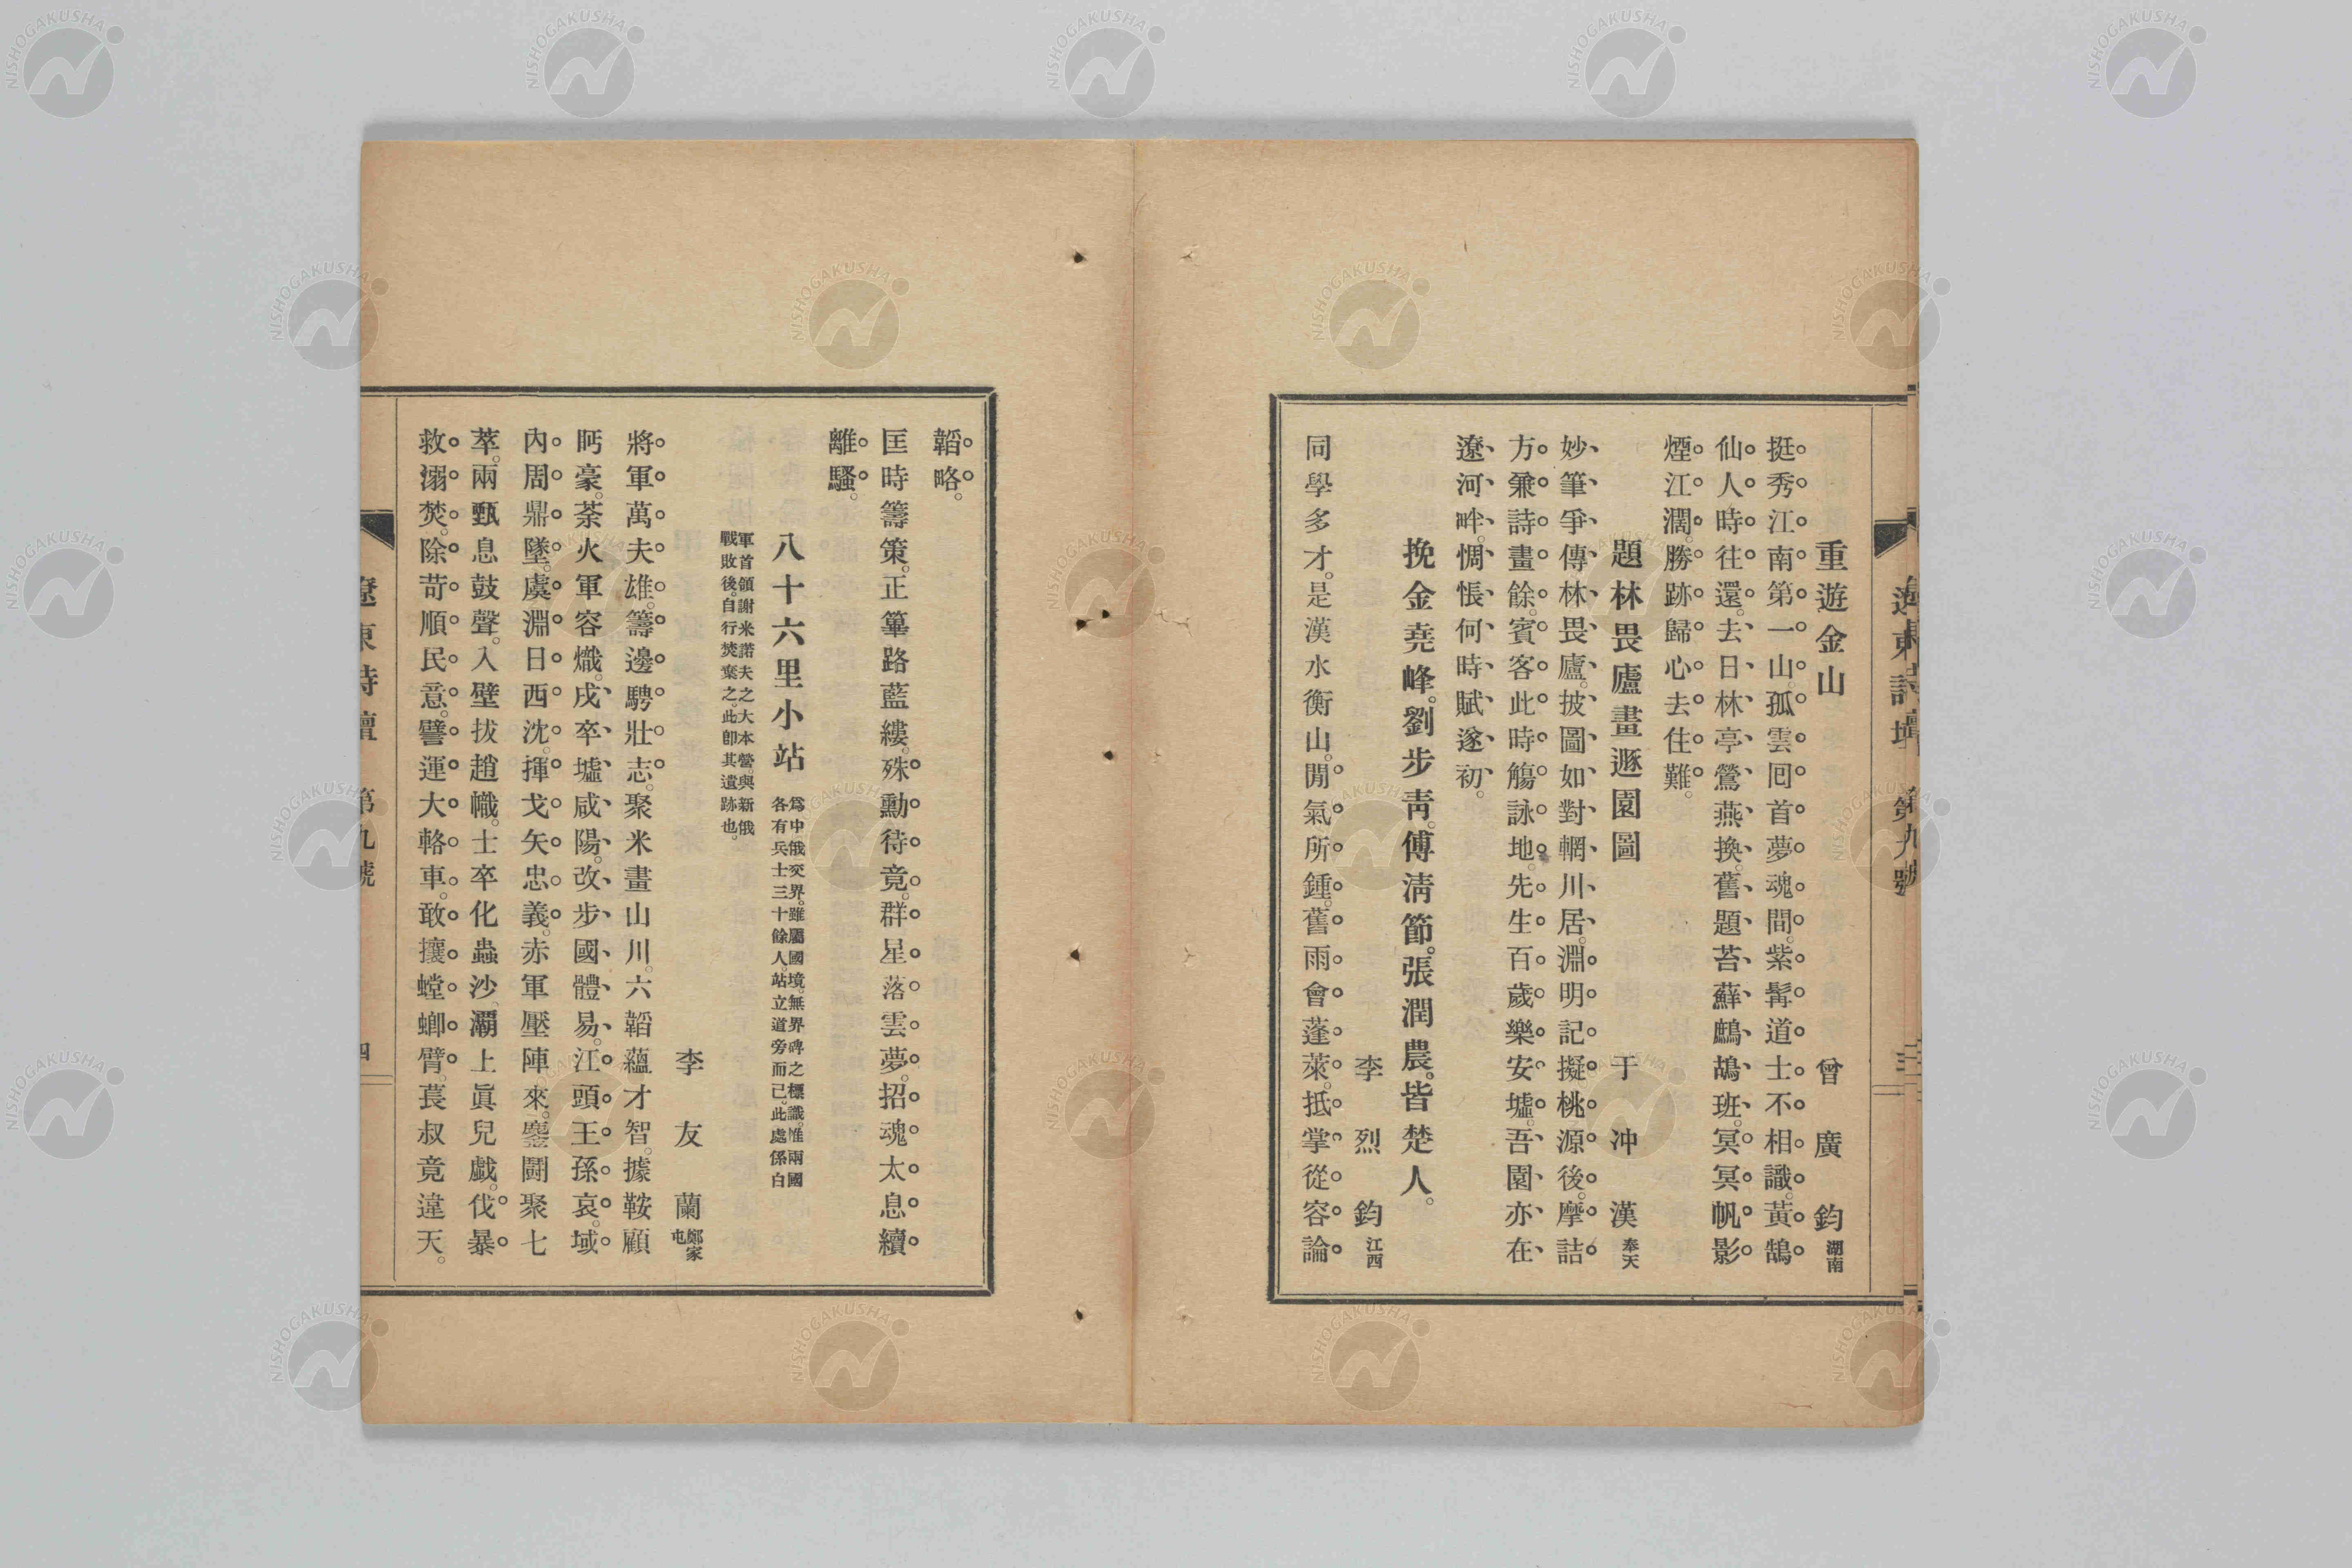 遼東詩壇 第九號 三
重遊金山 曾廣鈞 湖南
挺秀江南第一山。孤雲囘首夢魂間。紫髯道士不相識。黃鵠
仙人時往還。去日林亭鶯燕換。舊題苔蘚鷓鴣班。冥冥帆影
煙江濶。勝跡歸心去住難。
題林畏廬畫遯園圖 于冲漢 奉天
妙筆爭傳林畏廬。披圖如對輞川居。淵明記擬桃源後。摩詰
方兼詩畫餘。賓客此時觴詠地。先生百歲樂安墟。吾園亦在
遼河畔。惆悵何時賦遂初。
挽金堯峰。劉步靑。傅淸節。張潤農。皆楚人。
李烈鈞 江西
同學多才。是漢水衡山。閒氣所鍾。舊雨會蓬萊。抵掌從容論
韜略。
匡時籌策。正篳路藍縷。殊勳待竟。群星落雲夢。招魂太息續
離騷。
八十六里小站 爲中俄交界。雖屬國境。無界碑之標識。惟兩國
各有兵士三十餘人。站立道旁而已。此處係白
軍首領謝米諾夫之大本營。與新俄
戰敗後。自行焚棄之。此卽其遺跡也。
李友蘭 鄭家屯
將軍萬夫雄。籌邊騁壯志。聚米畫山川。六韜蘊才智。據鞍顧
眄豪。荼火軍容熾。戍卒墟咸陽。改步國體易。江頭王孫哀。域
內周鼎墜。虞淵日西沈。揮戈矢忠義。赤軍壓陣來。鏖鬪聚七
萃。兩甄息鼓聲。入壁拔趙幟。士卒化蟲沙。灞上眞兒戲。伐暴
救溺焚。除苛順民意。譬運大輅車。敢攘螳螂臂。萇叔竟違天。
遼東詩壇 第九號 四